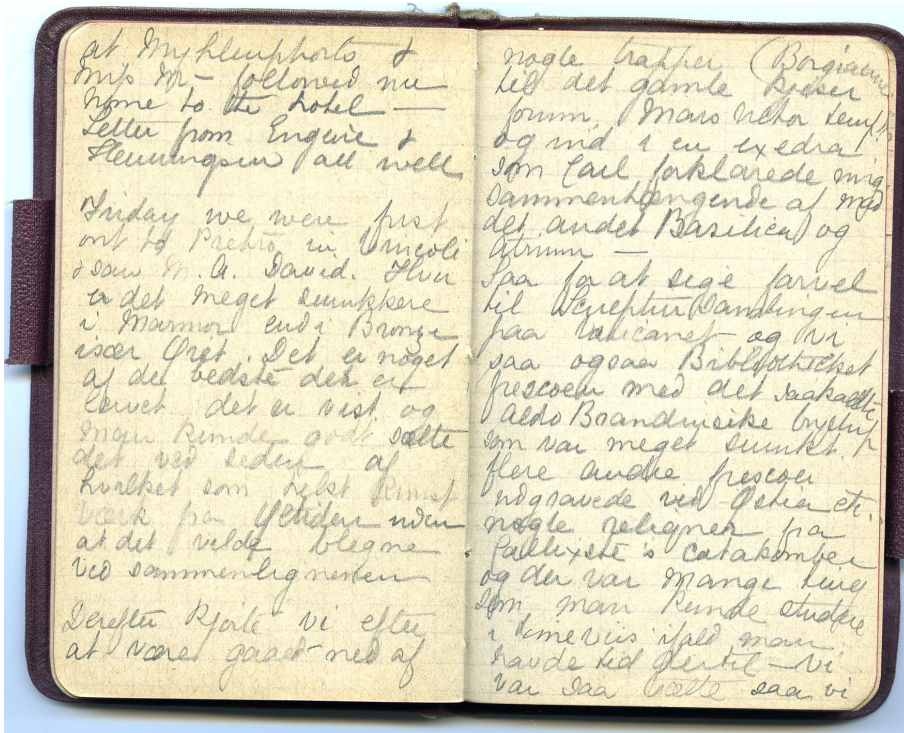 at
Miss M— followed me
home to the hotel —
Letter from Eugenie &
Henningsen all well
Friday we were first
out to Pietro in Vincoli
& saw M. A. David. Hvor
er det meget smukkere
i Marmor end i Bronze
især Øiet. Det er noget
af det bedste der er
levet det er vist og
man kunde godt sætte
det ved siden af
hvilket som helst Kunst
værk fra uden
at det vilde blegne
ved sammenligningen
Derefter kjørte vi efter
at være gaaet ned af
nogle trapper (Borgiaerne
til det gamle Kejser
forum Mars Ultor temp
og ind i en exedra
som Carl forklarede mig
sammenhængende af mad
det andet Basilica) og
atrium —
Saa for at sige farvel
til Sculptur Samlingen
paa Vaticanet og vi
saa ogsaa Bibliotheket
frescoen med det saakaldte
Aldobrandinske bryllup
som var meget smukt.
flere andre frescoer
udgravede ved Ostia etc.
nogle fra
Callixste's Catakomber
og der var mange ting
som man kunde studere
i timevis ifald man
havde tid dertil — vi
var saa trætte saa vi